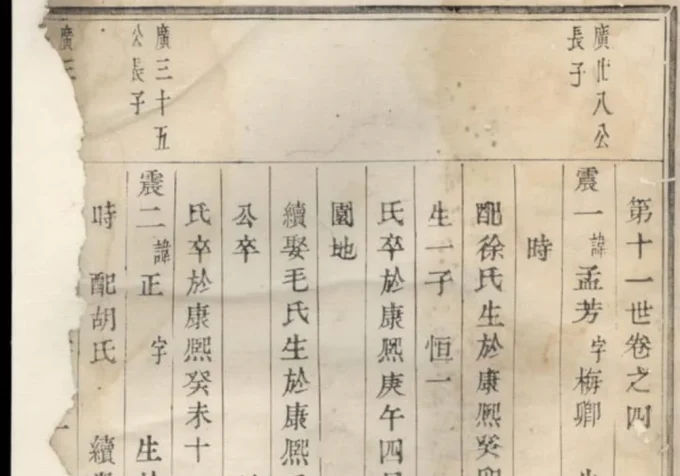 第十一世卷之四
廣廿八公
長子
震一 諱孟芳 字梅卿
時
配徐氏生於康熙癸卯
生一子 恒一
氏卒於康熙庚午四月
園地
續娶毛氏生於康熙
公卒
氏卒於康熙癸未十
廣三十五
公長子
震二 諱正 字 生於
時 配胡氏 續
廣三